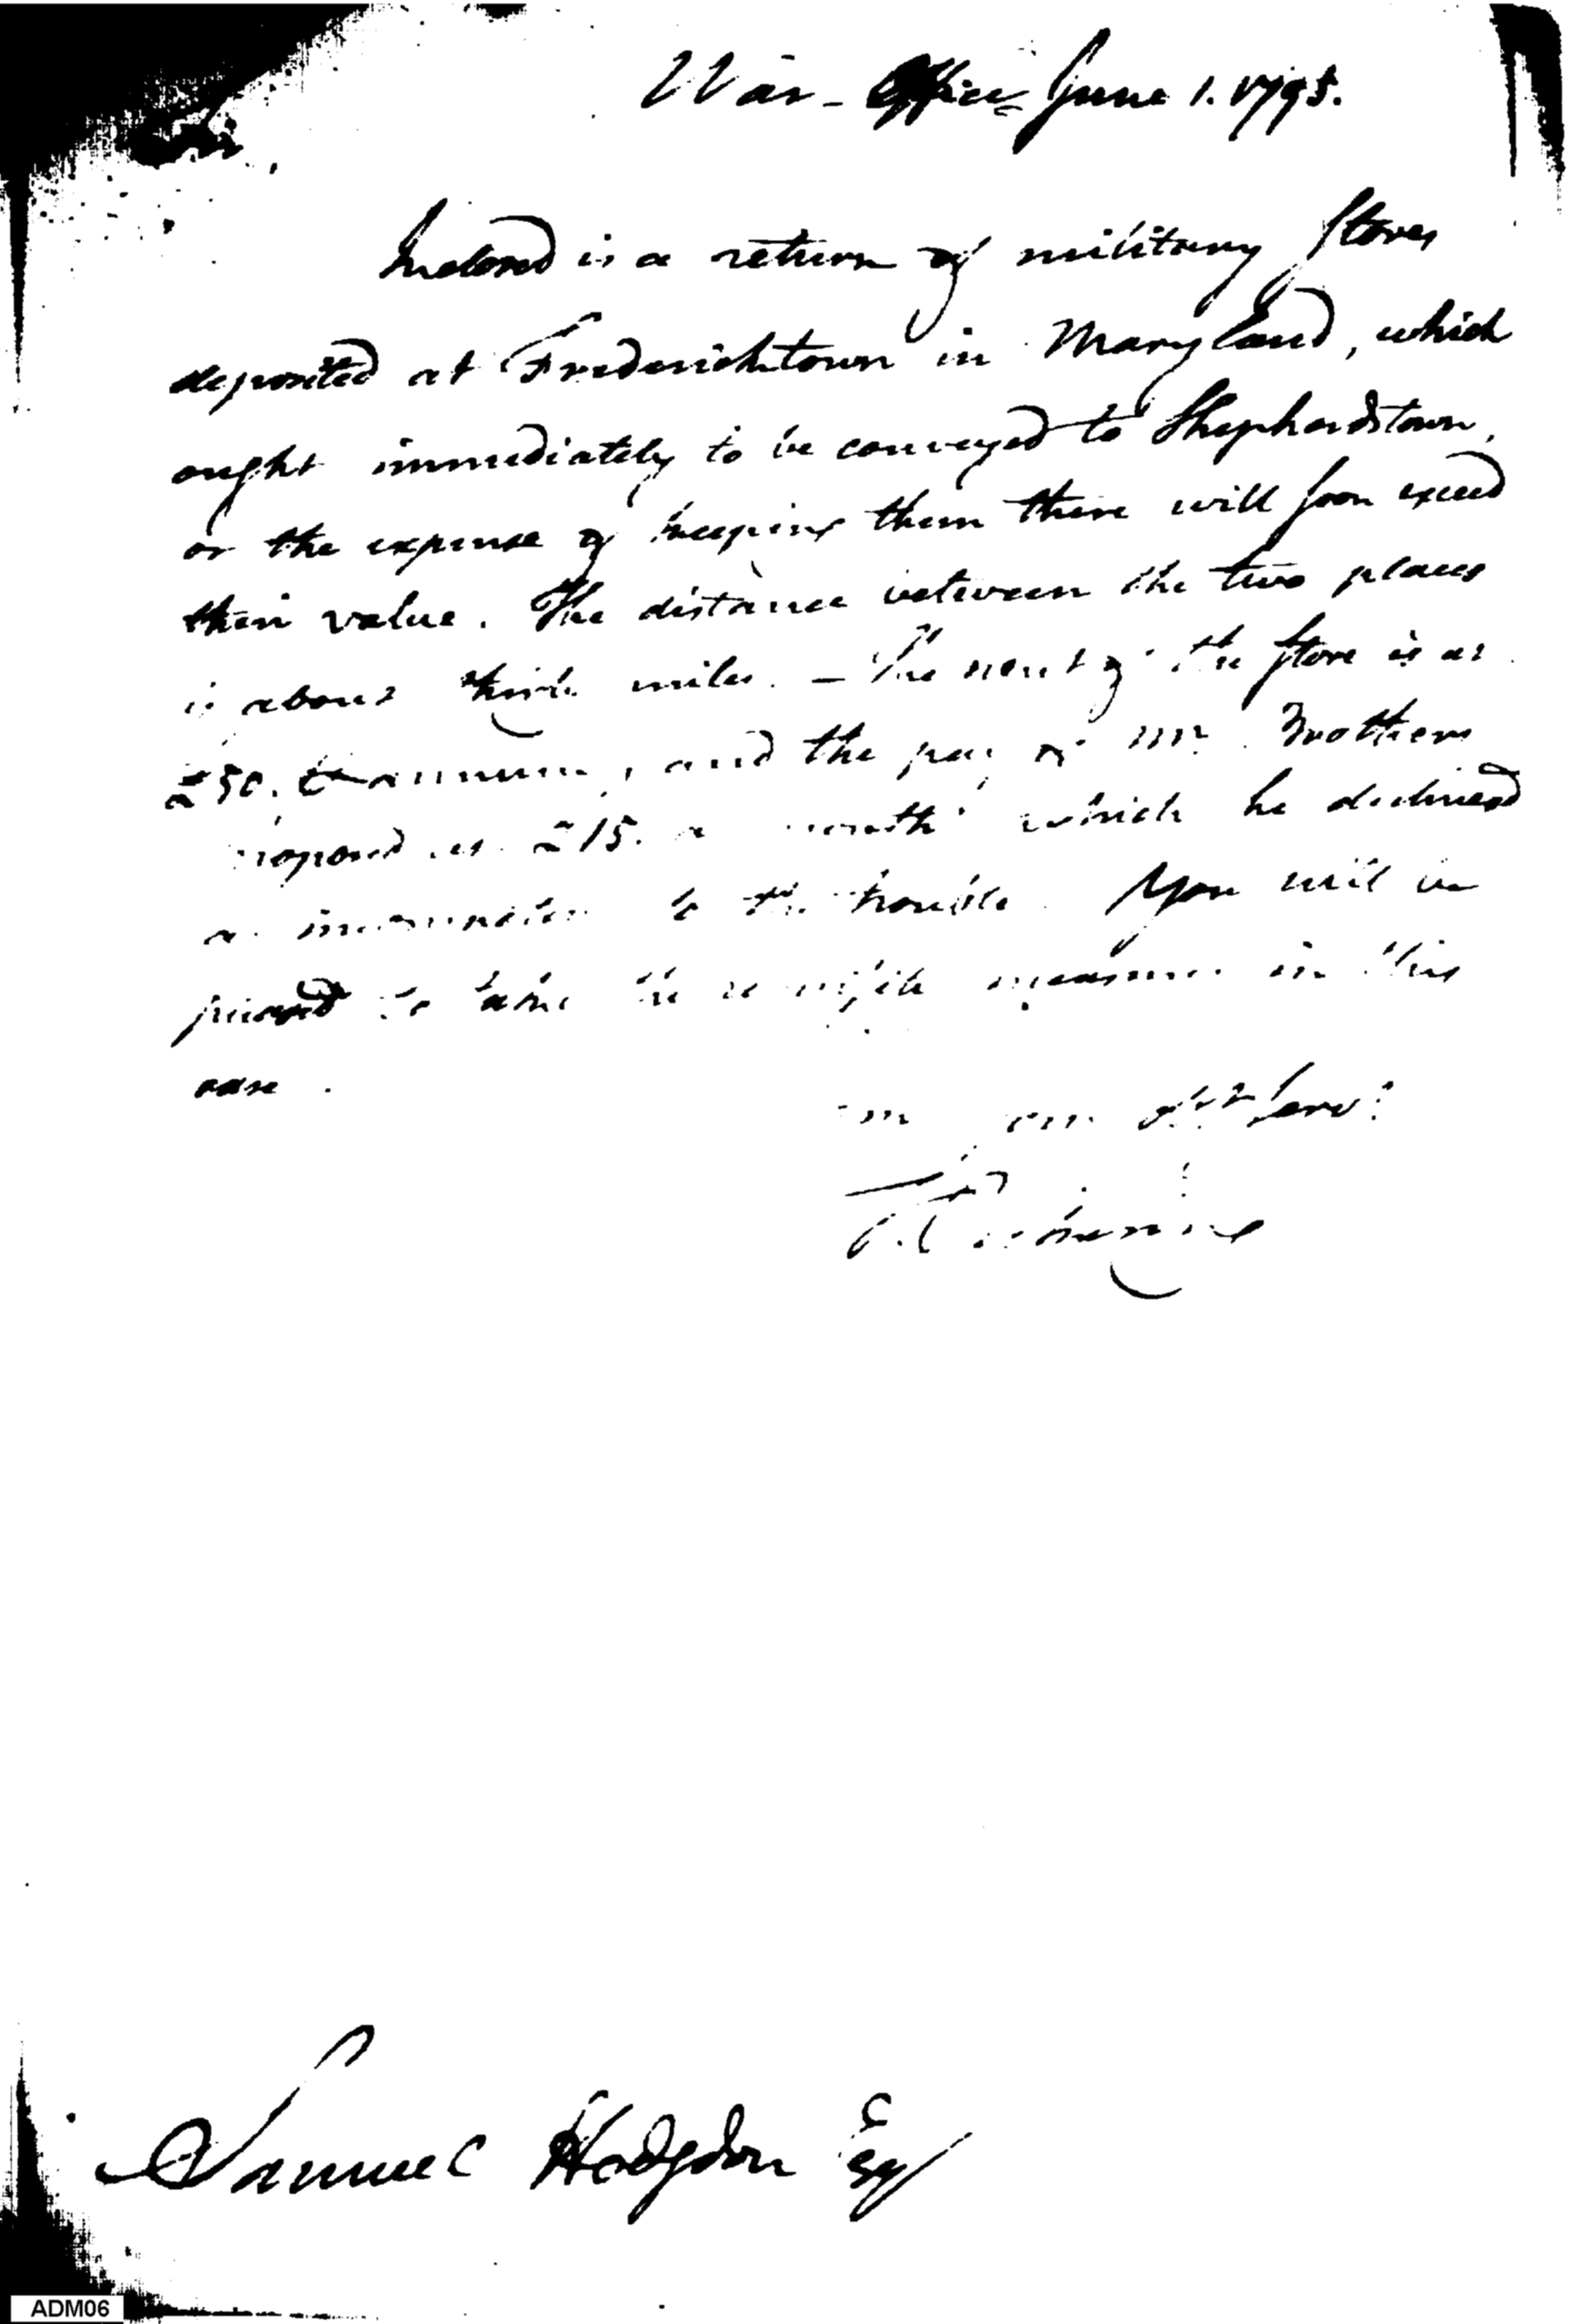 War-Office June 1. 1795.
Sir,
Inclosed is a return of military stores
deposited at Fredericktown in Maryland, which
ought immediately to be conveyed to Shephardstown,
or the expense of keeping them there will soon exceed
their value. The distance between the two places
is about thirty miles. - The rent of the store is at
£50. annum, and the pay of Mr.
proposed at £15. a month which he declined
a to the trouble. You will be
pleased to take the requisite measures in this
case.
I am obt. servt.
T. Pickering
Samuel Hodgdon Esq
ADM06